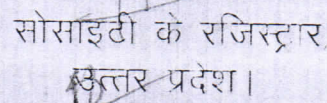 सोसाइटी के रजिस्ट्रार
उत्तर प्रदेश।